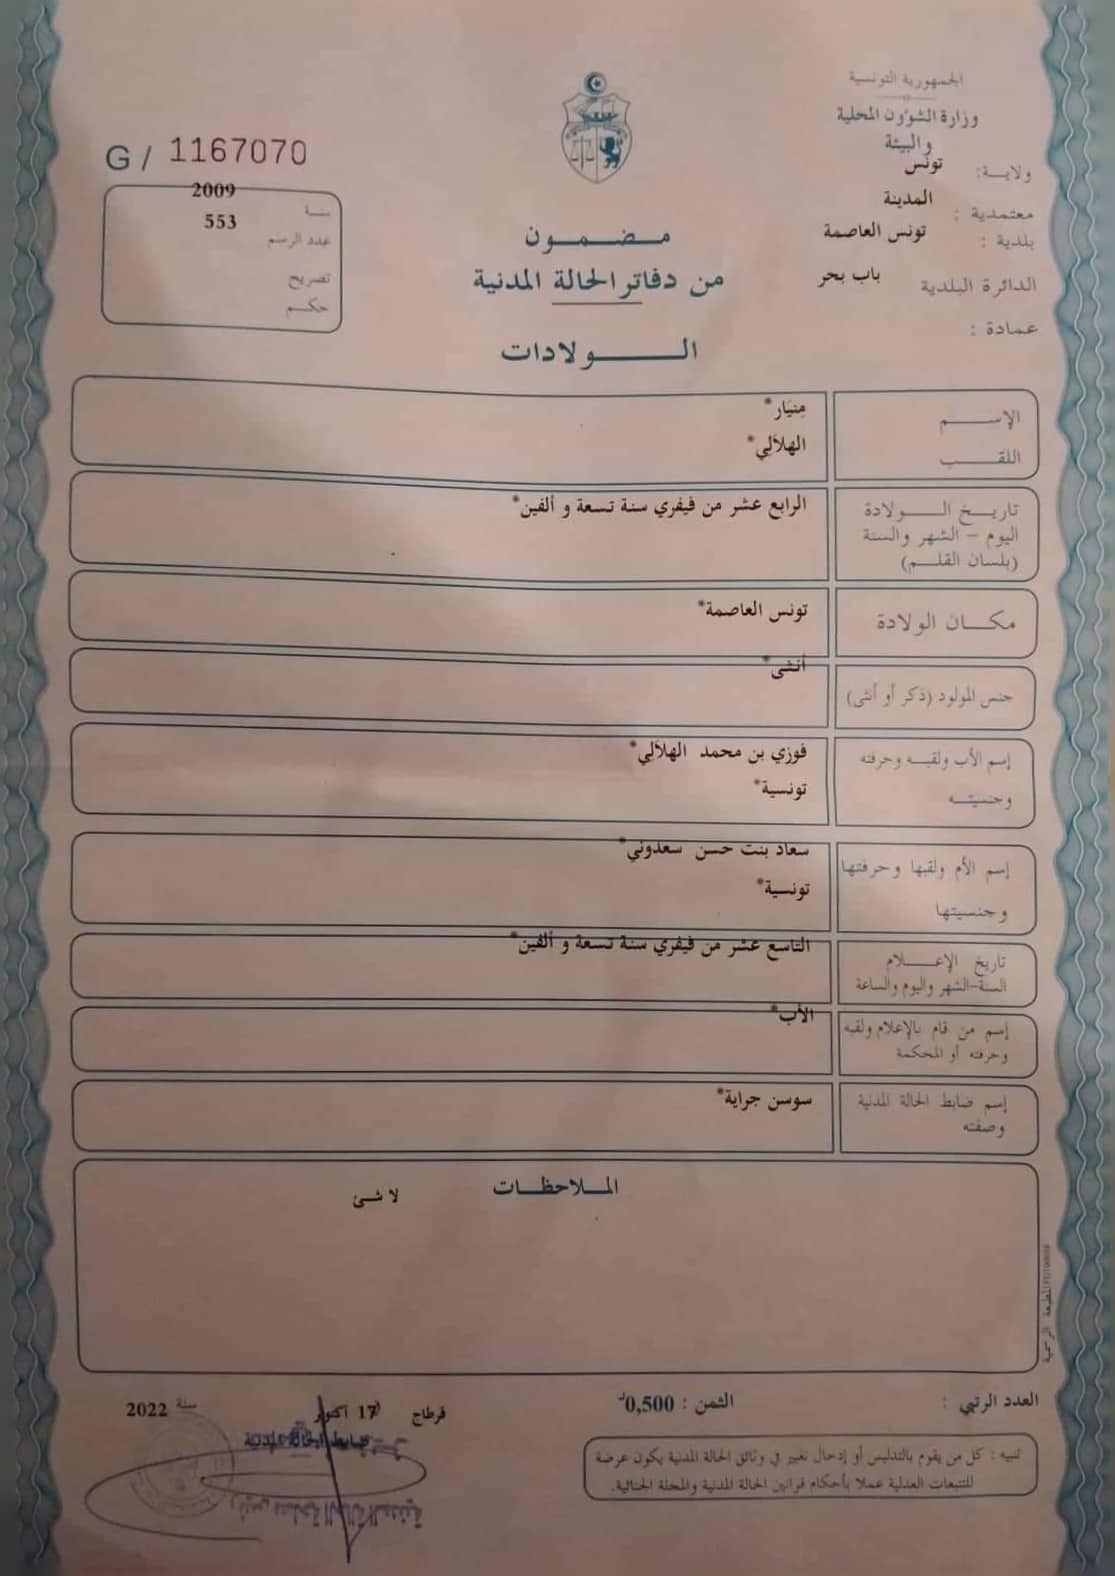 الجمهورية التونسية
وزارة الشؤون المحلية
والبيئة
ولاية: تونس
معتمدية : المدينة
بلدية : تونس العاصمة
الدائرة البلدية باب بحر
عمادة :
G / 1167070
سنة 2009
عدد الرسم 553
تصريح
حكم
مضمون
من دفاتر الحالة المدنية
الولادات
الإسم مِنيَار*
اللقب الهلاَلِي*
تاريخ الولادة الرابع عشر من فيفري سنة تسعة و ألفين*
اليوم - الشهر والسنة
(بلسان القلم)
مكان الولادة تونس العاصمة*
جنس المولود (ذكر أو أنثى) أنثى*
إسم الأب ولقبه وحرفته فوزي بن محمد الهلاَلِي*
وجنسيته تونسية*
إسم الأم ولقبها وحرفتها سعاد بنت حسن سعدوني*
وجنسيتها تونسية*
تاريخ الإعلام التاسع عشر من فيفري سنة تسعة و ألفين*
السنة-الشهر واليوم والساعة
إسم من قام بالإعلام ولقبه الأب*
وحرفته أو المحكمة
إسم ضابط الحالة المدنية سوسن جراية*
وصفته
الملاحظات
لا شئ
المطبعة الرسمية
العدد الرتبي :
الثمن : 0,500د
قرطاج 17 أكتوبر سنة 2022
ضابط الحالة المدنية
تنبيه : كل من يقوم بالتدليس أو إدخال تغيير في وثائق الحالة المدنية يكون عرضة
للتتبعات العدلية عملا بأحكام قوانين الحالة المدنية والمجلة الجنائية.